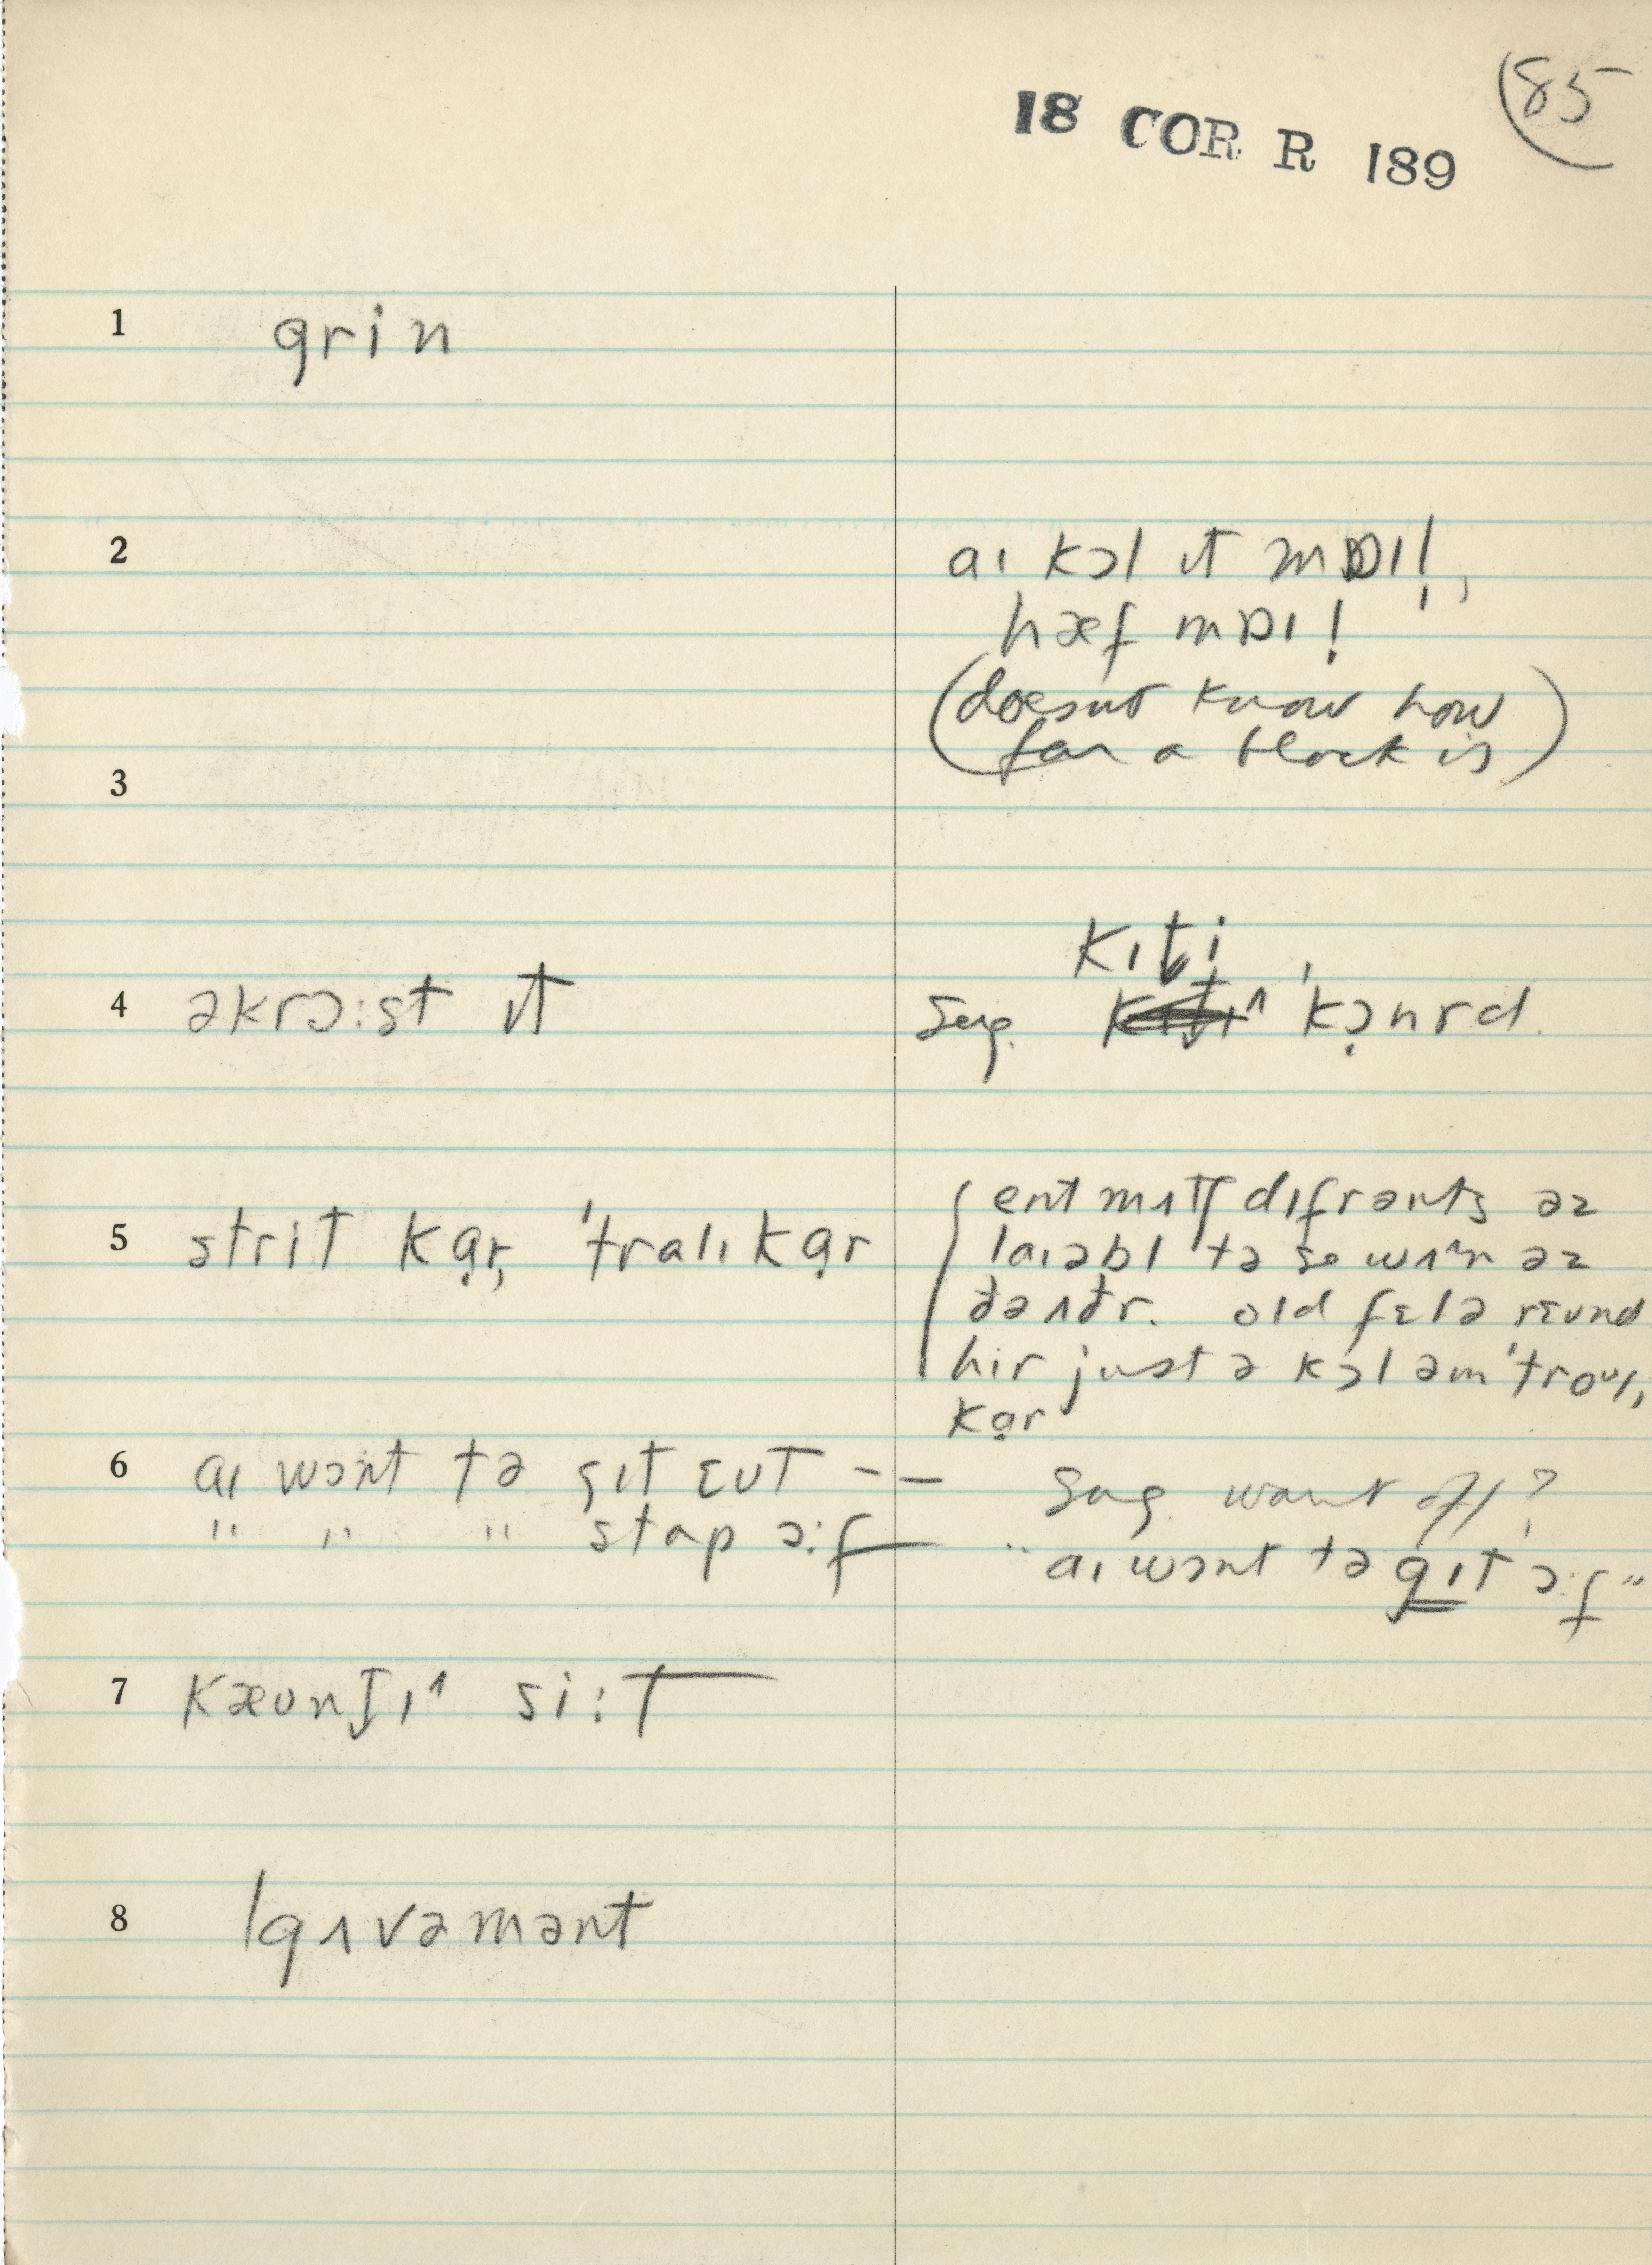 85
18 COR R 189
1 grin
2 aɪ kɔl ɪt mɒɪl,
hæf mɒɪl
(doesnt know how
far a block is)
3
4 əkrɔ:st ɪt
kɪt̬i
Sug. 'kɔ̣nrd.
5 strit kạr, 'tralɪkạr
ent mʌtʃ difrənts əz
laɪəbl tə se wʌˆn əz
ðə ʌðr. old fɛlə rɛund
hir just ə kɔl əm 'troᵘlɪ
kạr
6 aɪ wɔnt tə gɪt ɛʊt --
" " " stap ɔ:f
Sug. want off?
"aɪ wɔnt tə gɪt ɔ:f"
7 kæʊnṱɪ^ si:t
8 gʌvəmənt